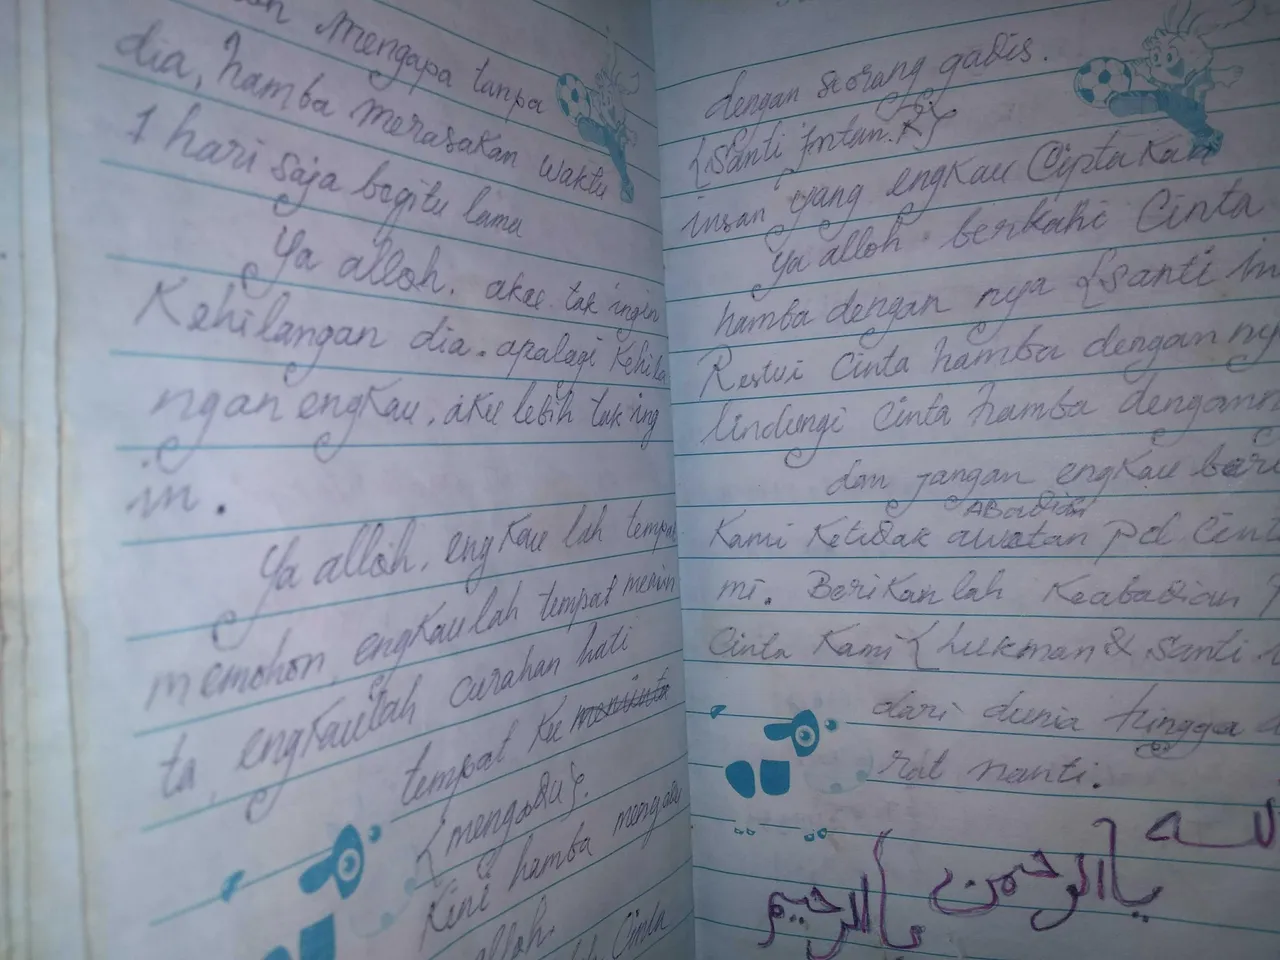 mengapa tanpa
dia, hamba merasakan waktu
1 hari saja begitu lama
Ya alloh. aku tak ingin
Kehilangan dia. apalagi Kehila
ngan engkau, aku lebih tak ing
in.
Ya alloh, engkau lah tempat
memohon, engkaulah tempat memin
ta, engkaulah curahan hati
tempat ku meminta
{mengadu}.
Kini hamba mengadu
alloh.
Cinta
dengan seorang gadis.
{Santi Intan.R}
insan yang engkau Ciptakan
Ya alloh. berkahi Cinta
hamba dengan nya {Santi In
Restui Cinta hamba dengan ny
lindungi Cinta hamba dengan
dan jangan engkau beri
ABadian
Kami Ketidak awatan pd Cint
mi. Berikan lah Keabadian P
Cinta Kami {Lukman & Santi.
dari dunia hingga a
rat nanti.
الله
يا الرحمن
يا الرحيم